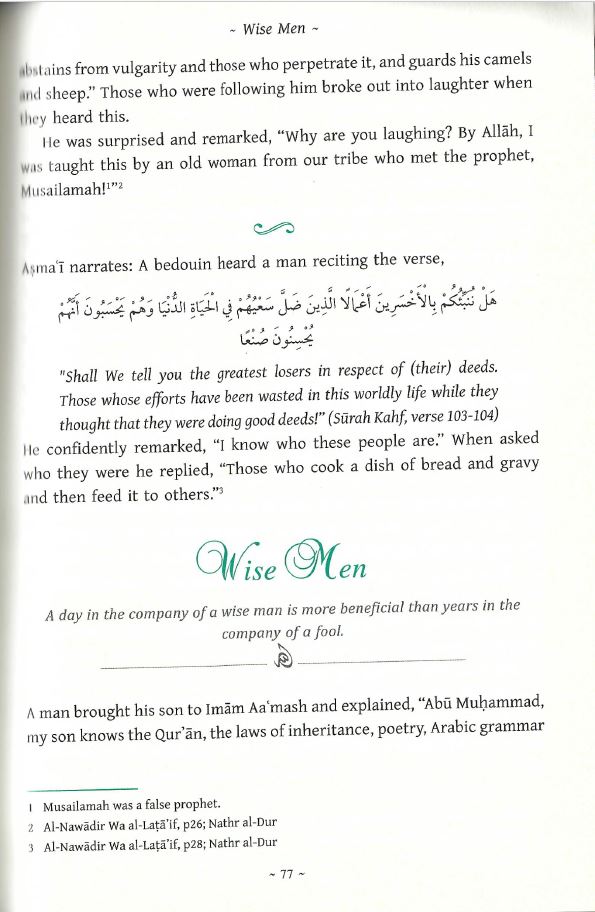 ~ Wise Men ~
abstains from vulgarity and those who perpetrate it, and guards his camels
and sheep.” Those who were following him broke out into laughter when
they heard this.
He was surprised and remarked, “Why are you laughing? By Allāh, I
was taught this by an old woman from our tribe who met the prophet,
Musailamah!¹”²
Aṣmaʿī narrates: A bedouin heard a man reciting the verse,
هَلْ نُنَبِّئُكُمْ بِالْأَخْسَرِينَ أَعْمَالًا الَّذِينَ ضَلَّ سَعْيُهُمْ فِي الْحَيَاةِ الدُّنْيَا وَهُمْ يَحْسَبُونَ أَنَّهُمْ
يُحْسِنُونَ صُنْعًا
"Shall We tell you the greatest losers in respect of (their) deeds.
Those whose efforts have been wasted in this worldly life while they
thought that they were doing good deeds!” (Sūrah Kahf, verse 103-104)
He confidently remarked, “I know who these people are.” When asked
who they were he replied, “Those who cook a dish of bread and gravy
and then feed it to others.”³
Wise Men
A day in the company of a wise man is more beneficial than years in the
company of a fool.
A man brought his son to Imām Aaʿmash and explained, “Abū Muḥammad,
my son knows the Qur’ān, the laws of inheritance, poetry, Arabic grammar
1 Musailamah was a false prophet.
2 Al-Nawādir Wa al-Laṭā’if, p26; Nathr al-Dur
3 Al-Nawādir Wa al-Laṭā’if, p28; Nathr al-Dur
~ 77 ~